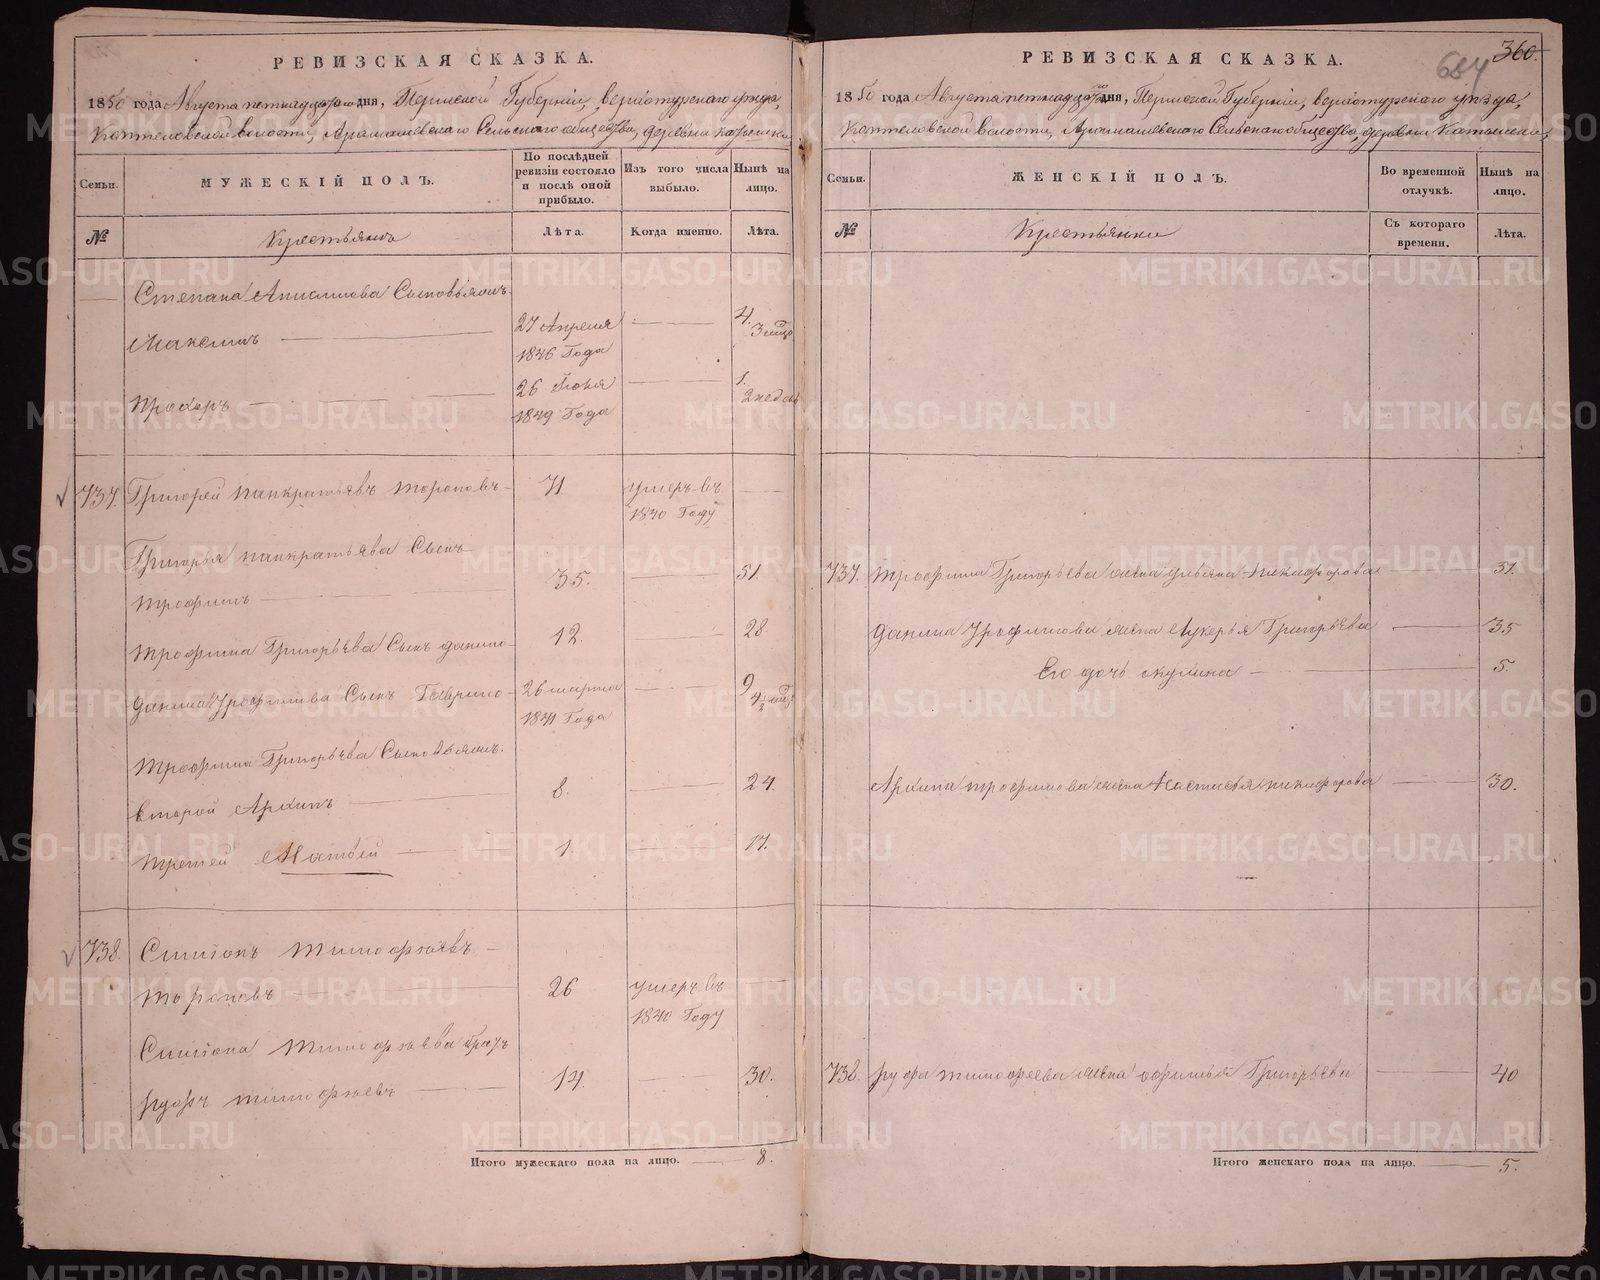 РЕВИЗСКАЯ СКАЗКА.
1850 года Августа пятнадцатого дня, Пермской Губернии, верхотурского уезда,
Коптеловской волости, Арамашевского Сельского общества, деревни
Семьи.
МУЖЕСКІЙ ПОЛЪ.
По послѣдней ревизіи состояло и послѣ оной прибыло.
Изъ того числа выбыло.
Нынѣ на лицо.
№
Крестьянъ
Лѣта.
Когда именно.
Лѣта.
Степана Сыновьямъ
Максимъ 27 Апреля 1846 Года 4.
Прохоръ 26 1849 Года 1.
737. Григорей Панкратьевъ Тороповъ 71 умеръ въ 1840 Году
Григорья Панкратьева Сынъ
Трофимъ 35. 51.
Трофима Григорьева Сынъ Данило 12. 28
Данила Трофимова Сынъ Гаврило 26 марта 1841 Года 9
Трофима Григорьева Сыновьямъ
второй Архипъ 8. 24.
третей Матвей 1. 17.
738. Симионъ Тимофеевъ
Тороповъ 26 умеръ въ 1840 Году
Симиона Тимофеева братъ
Руфъ Тимофеевъ 14. 30.
Итого мужескаго пола на лицо. 8.
684 360.
РЕВИЗСКАЯ СКАЗКА.
1850 года Августа пятнадцатого дня, Пермской Губернии, верхотурского уезда,
Коптеловской волости, Арамашевского Сельского общества, деревни
Семьи.
ЖЕНСКІЙ ПОЛЪ.
Во временной отлучкѣ.
Нынѣ на лицо.
№
Крестьянки
Съ котораго времени.
Лѣта.
737. Трофима Григорьева жена Никифорова 51.
Данила Трофимова жена Лукерья Григорьева 35
Его дочь Акулина 5.
Архипа Трофимова жена Настасья Никифорова 30.
738. Руфа Тимофеева жена Григорьева 40
Итого женскаго пола на лицо. 5.
METRIKI.GASO-URAL.RU